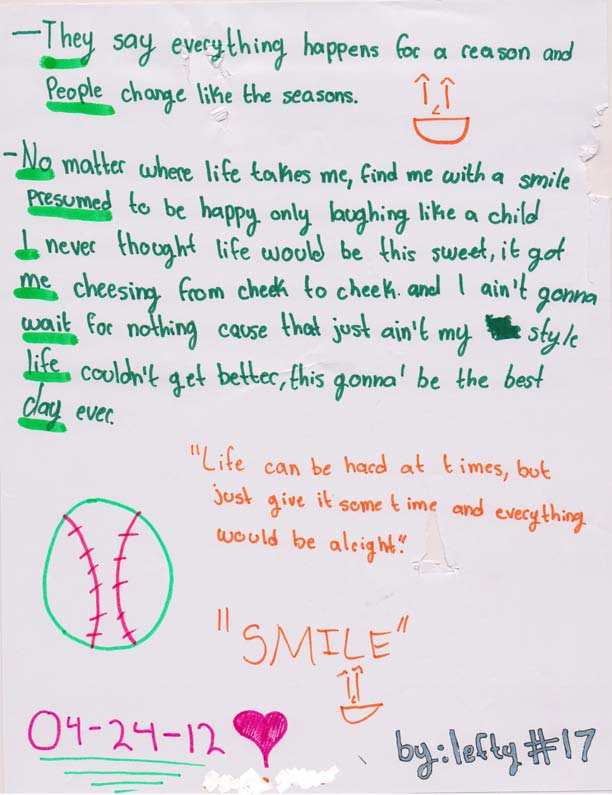 — They say everything happens for a reason and
People change like the seasons.
- No matter where life takes me, find me with a smile
Presumed to be happy only laughing like a child
I never thought life would be this sweet, it got
me cheesing from cheek to cheek. and I ain't gonna
wait for nothing cause that just ain't my style
life couldn't get better, this gonna' be the best
day ever.
"Life can be hard at times, but
just give it some time and everything
would be alright."
"SMILE"
04-24-12
by: lefty #17